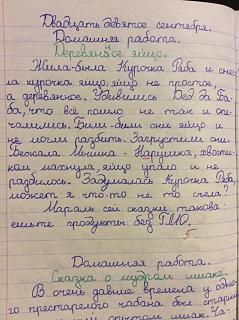 Двадцать девятое сентября.
Домашняя работа.
Деревянное яйцо.
Жила-была Курочка Ряба и снес
ла курочка яйцо, яйцо не простое,
а деревянное. Удивились Дед да Ба-
ба, что всё пошло не так и опе-
чалились. Били-били они яйцо и
не могли разбить. Загрустили они.
Бежала Мышка - Норушка, хвости-
ком махнула, яйцо упало и не
разбилось. Задумалась Курочка Ряба,
может я что-то не то съела?
Мораль сей сказки такова:
ешьте продукты без ГМО.
5
Домашняя работа.
Сказка о мудром ишаке.
В очень давние времена у одно-
го престарелого чабана был старый
опытом ишак. Ча-